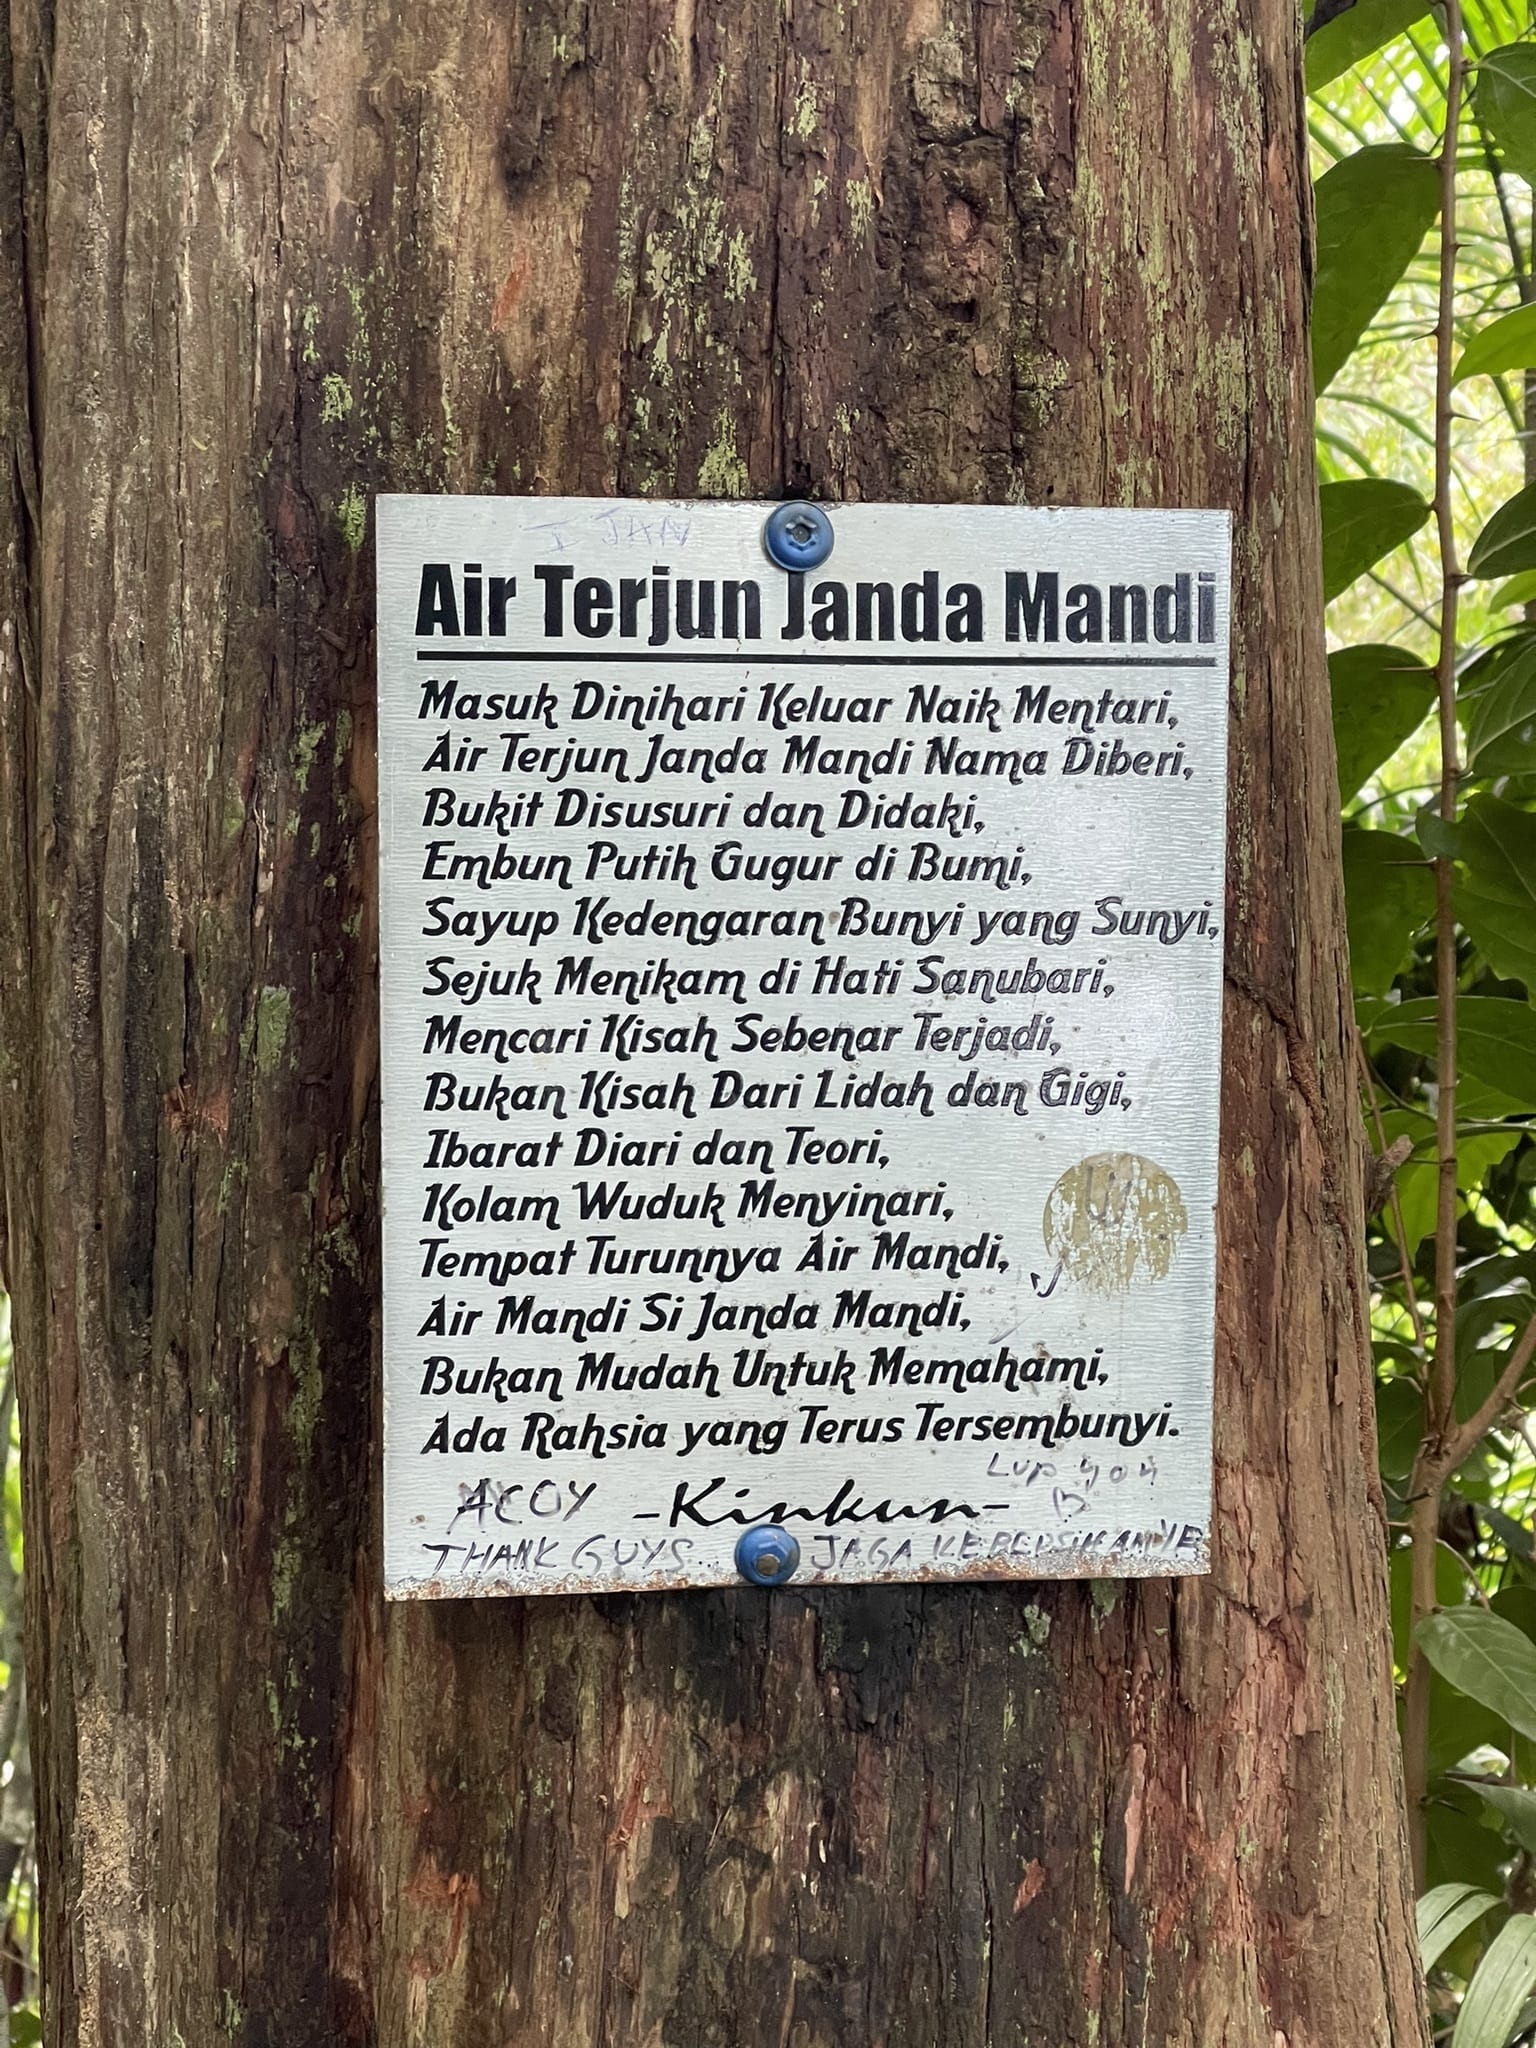 I JAN
Air Terjun Janda Mandi
Masuk Dinihari Keluar Naik Mentari,
Air Terjun Janda Mandi Nama Diberi,
Bukit Disusuri dan Didaki,
Embun Putih Gugur di Bumi,
Sayup Kedengaran Bunyi yang Sunyi,
Sejuk Menikam di Hati Sanubari,
Mencari Kisah Sebenar Terjadi,
Bukan Kisah Dari Lidah dan Gigi,
Ibarat Diari dan Teori,
Kolam Wuduk Menyinari,
Tempat Turunnya Air Mandi,
Air Mandi Si Janda Mandi,
Bukan Mudah Untuk Memahami,
Ada Rahsia yang Terus Tersembunyi.
ACOY -Kinkun-
THANK GUYS.. JAGA KEBERSIHAN YE